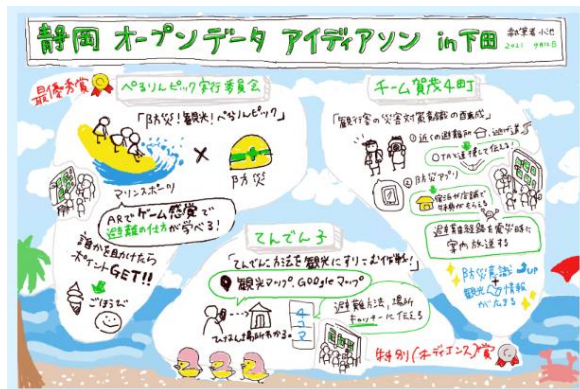 静岡 オープンデータ アイディアソン in下田
2021 9月12日
最優秀賞
ぺるりんピック実行委員会
「防災!観光!ぺるりんピック」
マリンスポーツ
×
防災
ARでゲーム感覚で
避難の仕方が学べる!
誰かを助けたら
ポイントGET!!
ごほうび
チーム賀茂4町
「観光客の災害対策意識の醸成」
①近くの避難所
逃げ道
OTAと連携して伝える!
②防災アプリ
宿泊や店舗で
特典がもらえる
避難経路を震災時に
案内放送する
防災意識 UP
+
観光の情報
が広まる
てんでん子
「てんでんこ方法を観光にすりこむ作戦!」
観光マップ、Googleマップ
ひなん場所わかる。
4コマ
避難方法、場所
キャッチーに伝える
特別(オーディエンス)賞